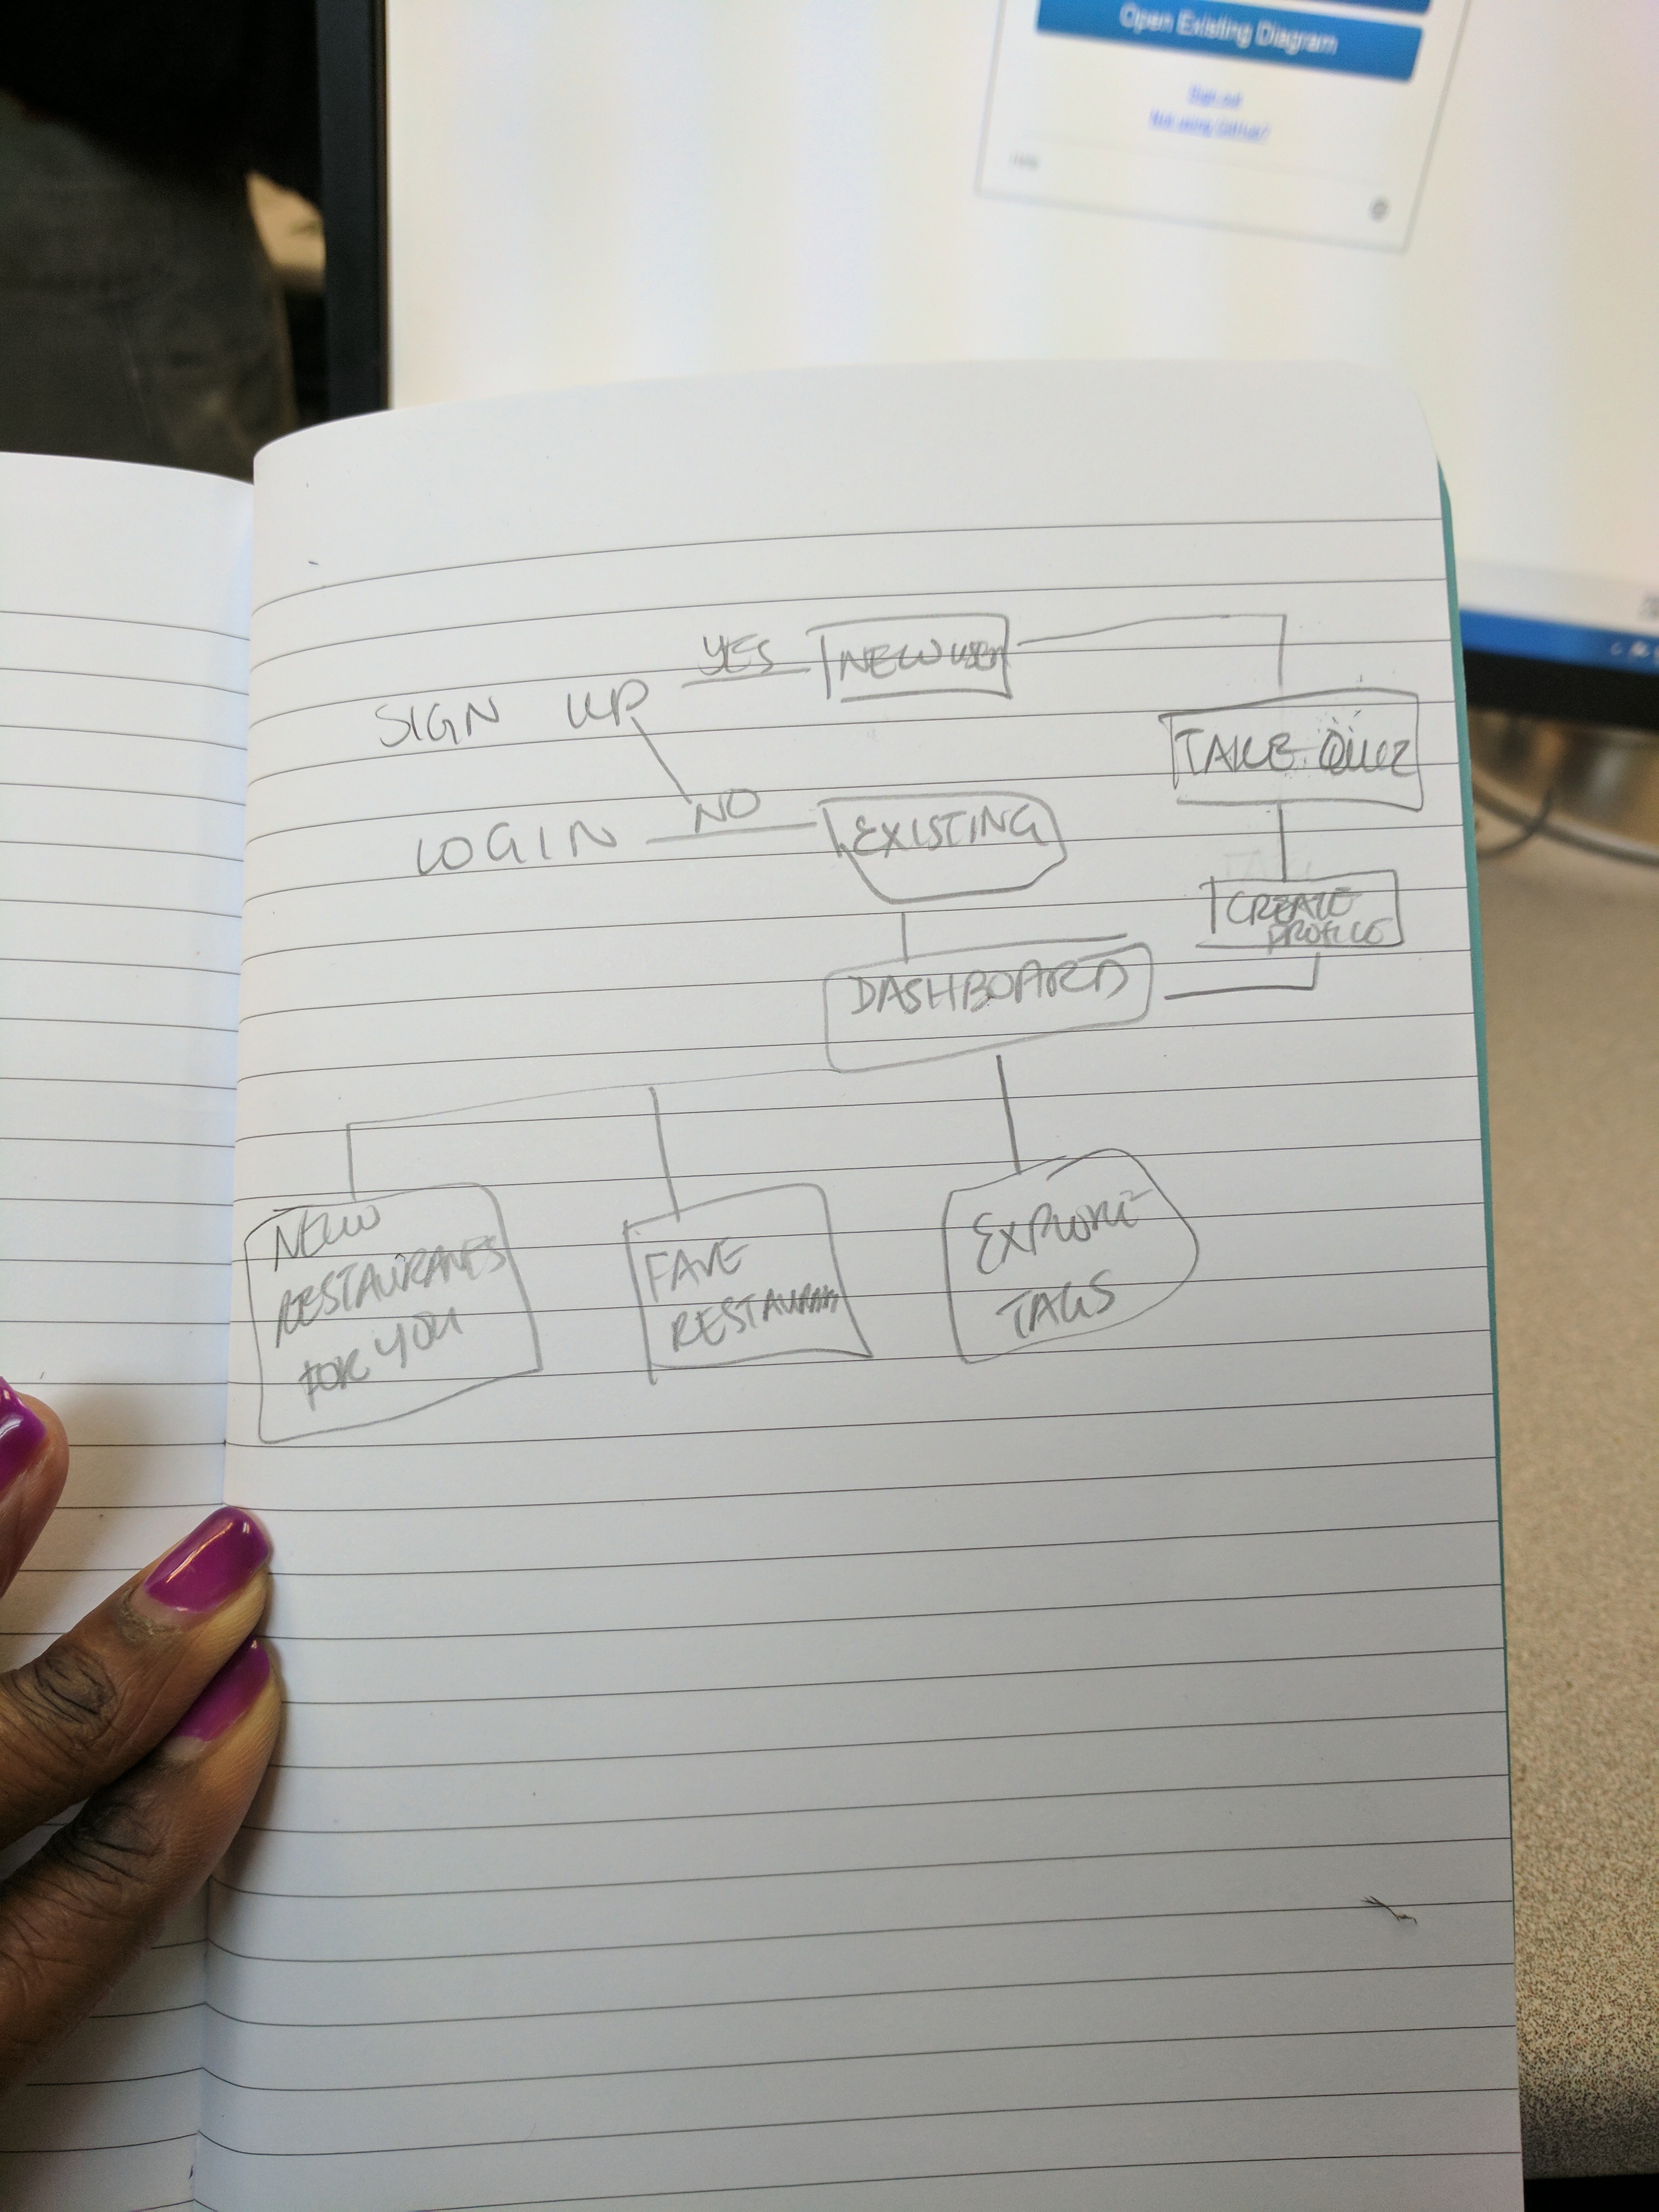 Open Existing Diagram
Sign out
Not using GitHub?
Help
YES NEW USER
SIGN UP
TAKE QUIZ
NO
LOGIN EXISTING
CREATE
PROFILE
DASHBOARD
NEW
RESTAURANTS
FOR YOU
FAVE
RESTAURANT
EXPLORE
TAGS